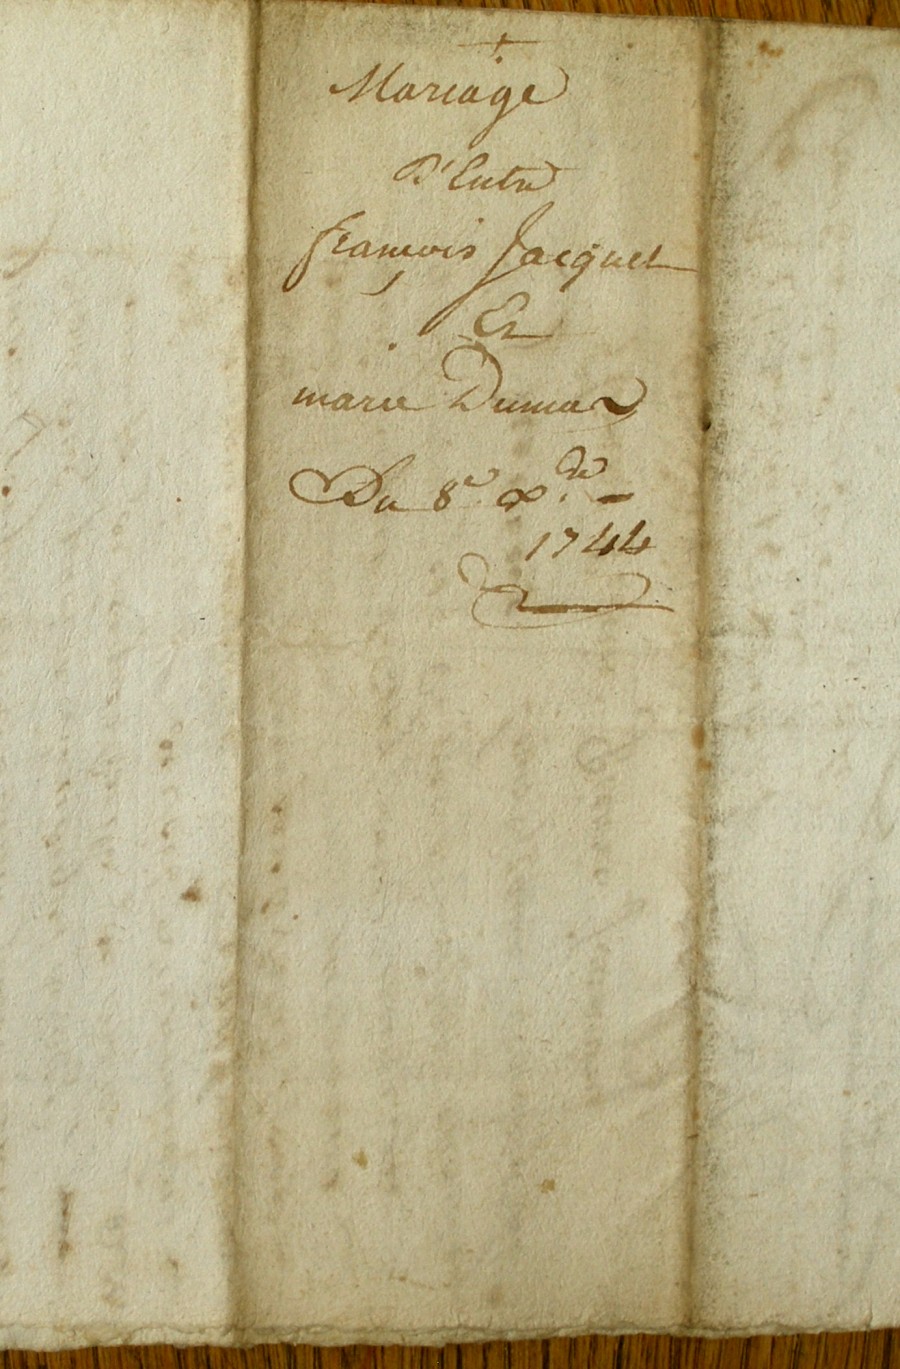 Mariage
D'Entre
françois Jacquet
Et
marie Dumas
Du 8e
1744